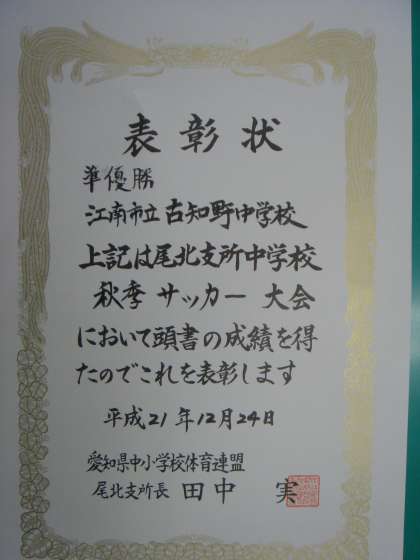 表彰状
準優勝
江南市立古知野中学校
上記は尾北支所中学校
秋季 サッカー 大会
において頭書の成績を得
たのでこれを表彰します
平成21年12月24日
愛知県中小学校体育連盟
尾北支所長 田中 実